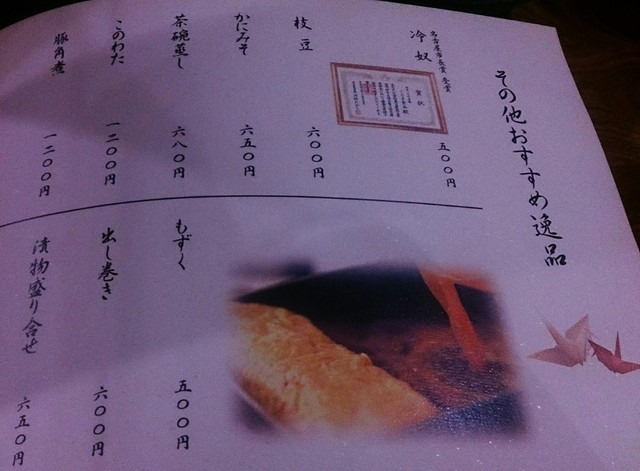 その他おすすめ逸品
名古屋市長賞 受賞
冷奴 五〇〇円
賞状
枝豆 六〇〇円
かにみそ 六五〇円
茶碗蒸し 六八〇円
このわた 一二〇〇円
豚角煮 一二〇〇円
もずく 五〇〇円
出し巻き 六〇〇円
漬物盛り合せ 六五〇円